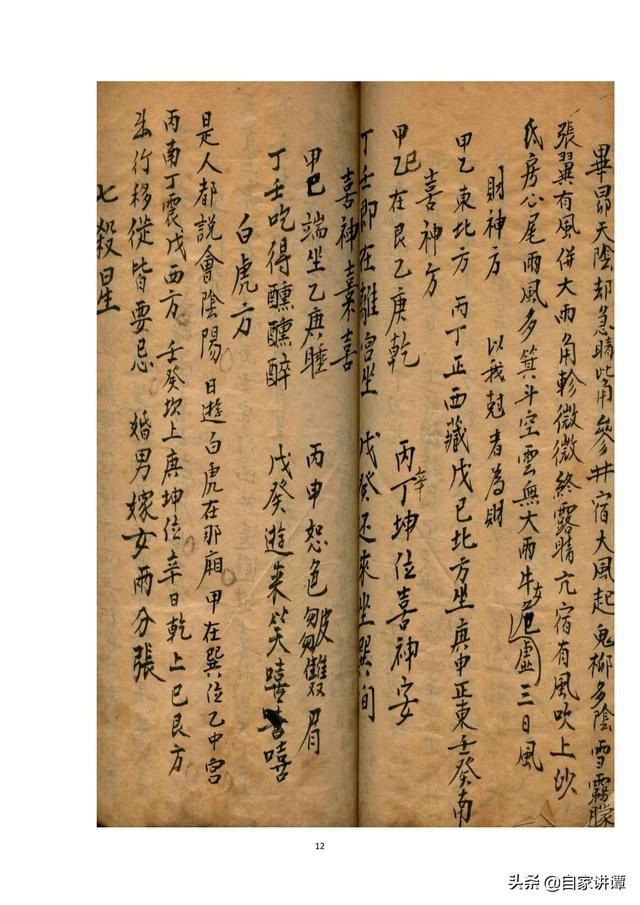 畢昴天陰却急晴此角參井宿大風起鬼柳多陰雪霧朦
張翼有風併大雨角軫微微終露晴亢宿有風吹上沙
氐房心尾雨風多箕斗空雲無大雨牛女危虛三日風
財神方 以我尅者為財
甲乙東北方 丙丁正西藏戊己北方坐庚申正東壬癸南
喜神方
甲己在艮乙庚乾 丙辛丁坤位喜神安
丁壬即在離宮坐 戊癸还來坐巽间
喜神喜
甲巳端坐乙庚睡 丙申怒色皺雙眉
丁壬吃得醺醺醉 戊癸遊來笑嘻嘻
白虎方
是人都說會陰陽 日遊白虎在那廂 甲在巽位乙中宮
丙南丁震戊西方 壬癸坎上庚坤位辛日乾上巳艮方
出行移徙皆要忌 婚男嫁女兩分張
七殺星
12
头条 @自家讲谭